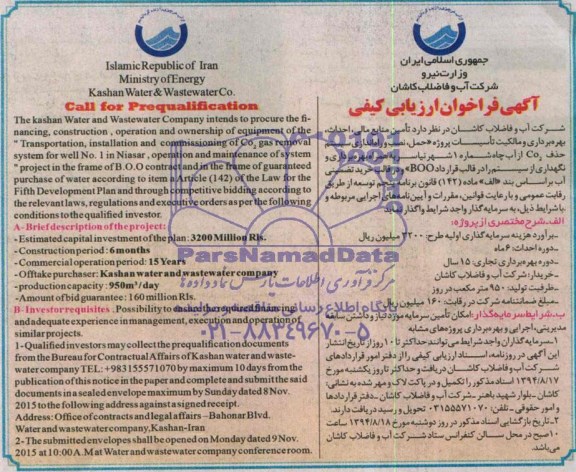 Islamic Republic of Iran
Ministry of Energy
Kashan Water & Wastewater Co.
Call for Prequalification
The kashan Water and Wastewater Company intends to procure the fi-
nancing, construction , operation and ownership of equipment of the
" Transportation, installation and commissioning of Co2 gas removal
system for well No. 1 in Niasar , operation and maintenance of system
" project in the frame of B.O.O contract and in the frame of guaranteed
purchase of water according to item Article (142) of the Law for the
Fifth Development Plan and through competitive bidding according to
the relevant laws, regulations and executive orders as per the following
conditions to the qualified investor.
A- Brief description of the project:
- Estimated capital investment of the plan: 3200 Million Rls.
- Construction period : 6 months
- Commercial operation period: 15 Years
- Offtake purchaser: Kashan water and wastewater company
- production capacity : 950m³ / day
- Amount of bid guarantee : 160 million Rls.
B- Investor requisites . Possibility to
and adequate experience in management, execution and operation of
similar projects.
1- Qualified investors may collect the prequalification documents
from the Bureau for Contractual Affairs of Kashan water and waste-
water company TEL: +983155571070 by maximum 10 days from the
publication of this notice in the paper and complete and submit the said
documents in a sealed envelope maximum by Sunday dated 8 Nov.
2015 to the following address against a signed receipt.
Address: Office of contracts and legal affairs – Bahonar Blvd.
Water and wastewater company, Kashan-Iran
2- The submitted envelopes shall be opened on Monday dated 9 Nov.
2015 at 10:00 A.M at Water and wastewater company conference room.
جمهوری اسلامی ایران
وزارت نیرو
شرکت آب و فاضلاب کاشان
آگهی فراخوان ارزیابی کیفی
شرکت آب و فاضلاب کاشان در نظر دارد تأمین منابع مالی، احداث،
بهره برداری و مالکیت تأسیسات پروژه «حمل، نصب و راه اندازی
حذف Co2 از آب چاه شماره ۱ شهر نیاسر بهره برداری و
نگهداری از سیستم» را در قالب قرارداد BOO و خرید تضمینی
آب براساس بند «الف» ماده (۱۴۲) قانون برنامه پنجم توسعه از طریق
رقابت عمومی و با رعایت قوانین، مقررات و آیین نامه های اجرایی مربوطه و
با شرایط ذیل، به سرمایه گذار واجد شرایط واگذار نماید.
الف- شرح مختصری از پروژه:
-برآورد هزینه سرمایه گذاری اولیه طرح: ۳۲۰۰ میلیون ریال
-دوره احداث: ۶ ماه
-دوره بهره برداری تجاری: ۱۵ سال
-خریدار: شرکت آب و فاضلاب کاشان
-ظرفیت تولید: ۹۵۰ متر مکعب در روز
-مبلغ ضمانتنامه شرکت در رقابت: ۱۶۰ میلیون ریال
ب- شرایط سرمایه گذار: امکان تأمین سرمایه مورد نیاز و داشتن سابقه
مدیریتی، اجرایی و بهره برداری پروژه های مشابه
۱-سرمایه گذاران واجد شرایط می توانند حداکثر تا ۱۰ روز از تاریخ انتشار
این آگهی در روزنامه، اسناد ارزیابی کیفی را از دفتر امور قراردادهای
شرکت آب و فاضلاب کاشان دریافت و حداکثر تا روز یکشنبه مورخ
۱۳۹۴/۸/۱۷ اسناد مذکور را تکمیل و در پاکت لاک و مهر شده به نشانی:
کاشان-بلوار شهید باهنر-شرکت آب و فاضلاب کاشان-دفتر قراردادها
و امور حقوقی-تلفن: ۰۳۱۵۵۵۷۱۰۷۰ تحویل و رسید دریافت دارند.
۲-تاریخ بازگشایی اسناد مذکور در روز دوشنبه مورخ ۱۳۹۴/۸/۱۸ ساعت
۱۰ صبح در محل سالن کنفرانس ستاد شرکت آب و فاضلاب کاشان
می باشد.
ParsNamadData
مرکز فرآوری اطلاعات پارس نماد داده ها
پایگاه اطلاع رسانی
۰۲۱-۸۸۳۴۹۶۷۰-۵